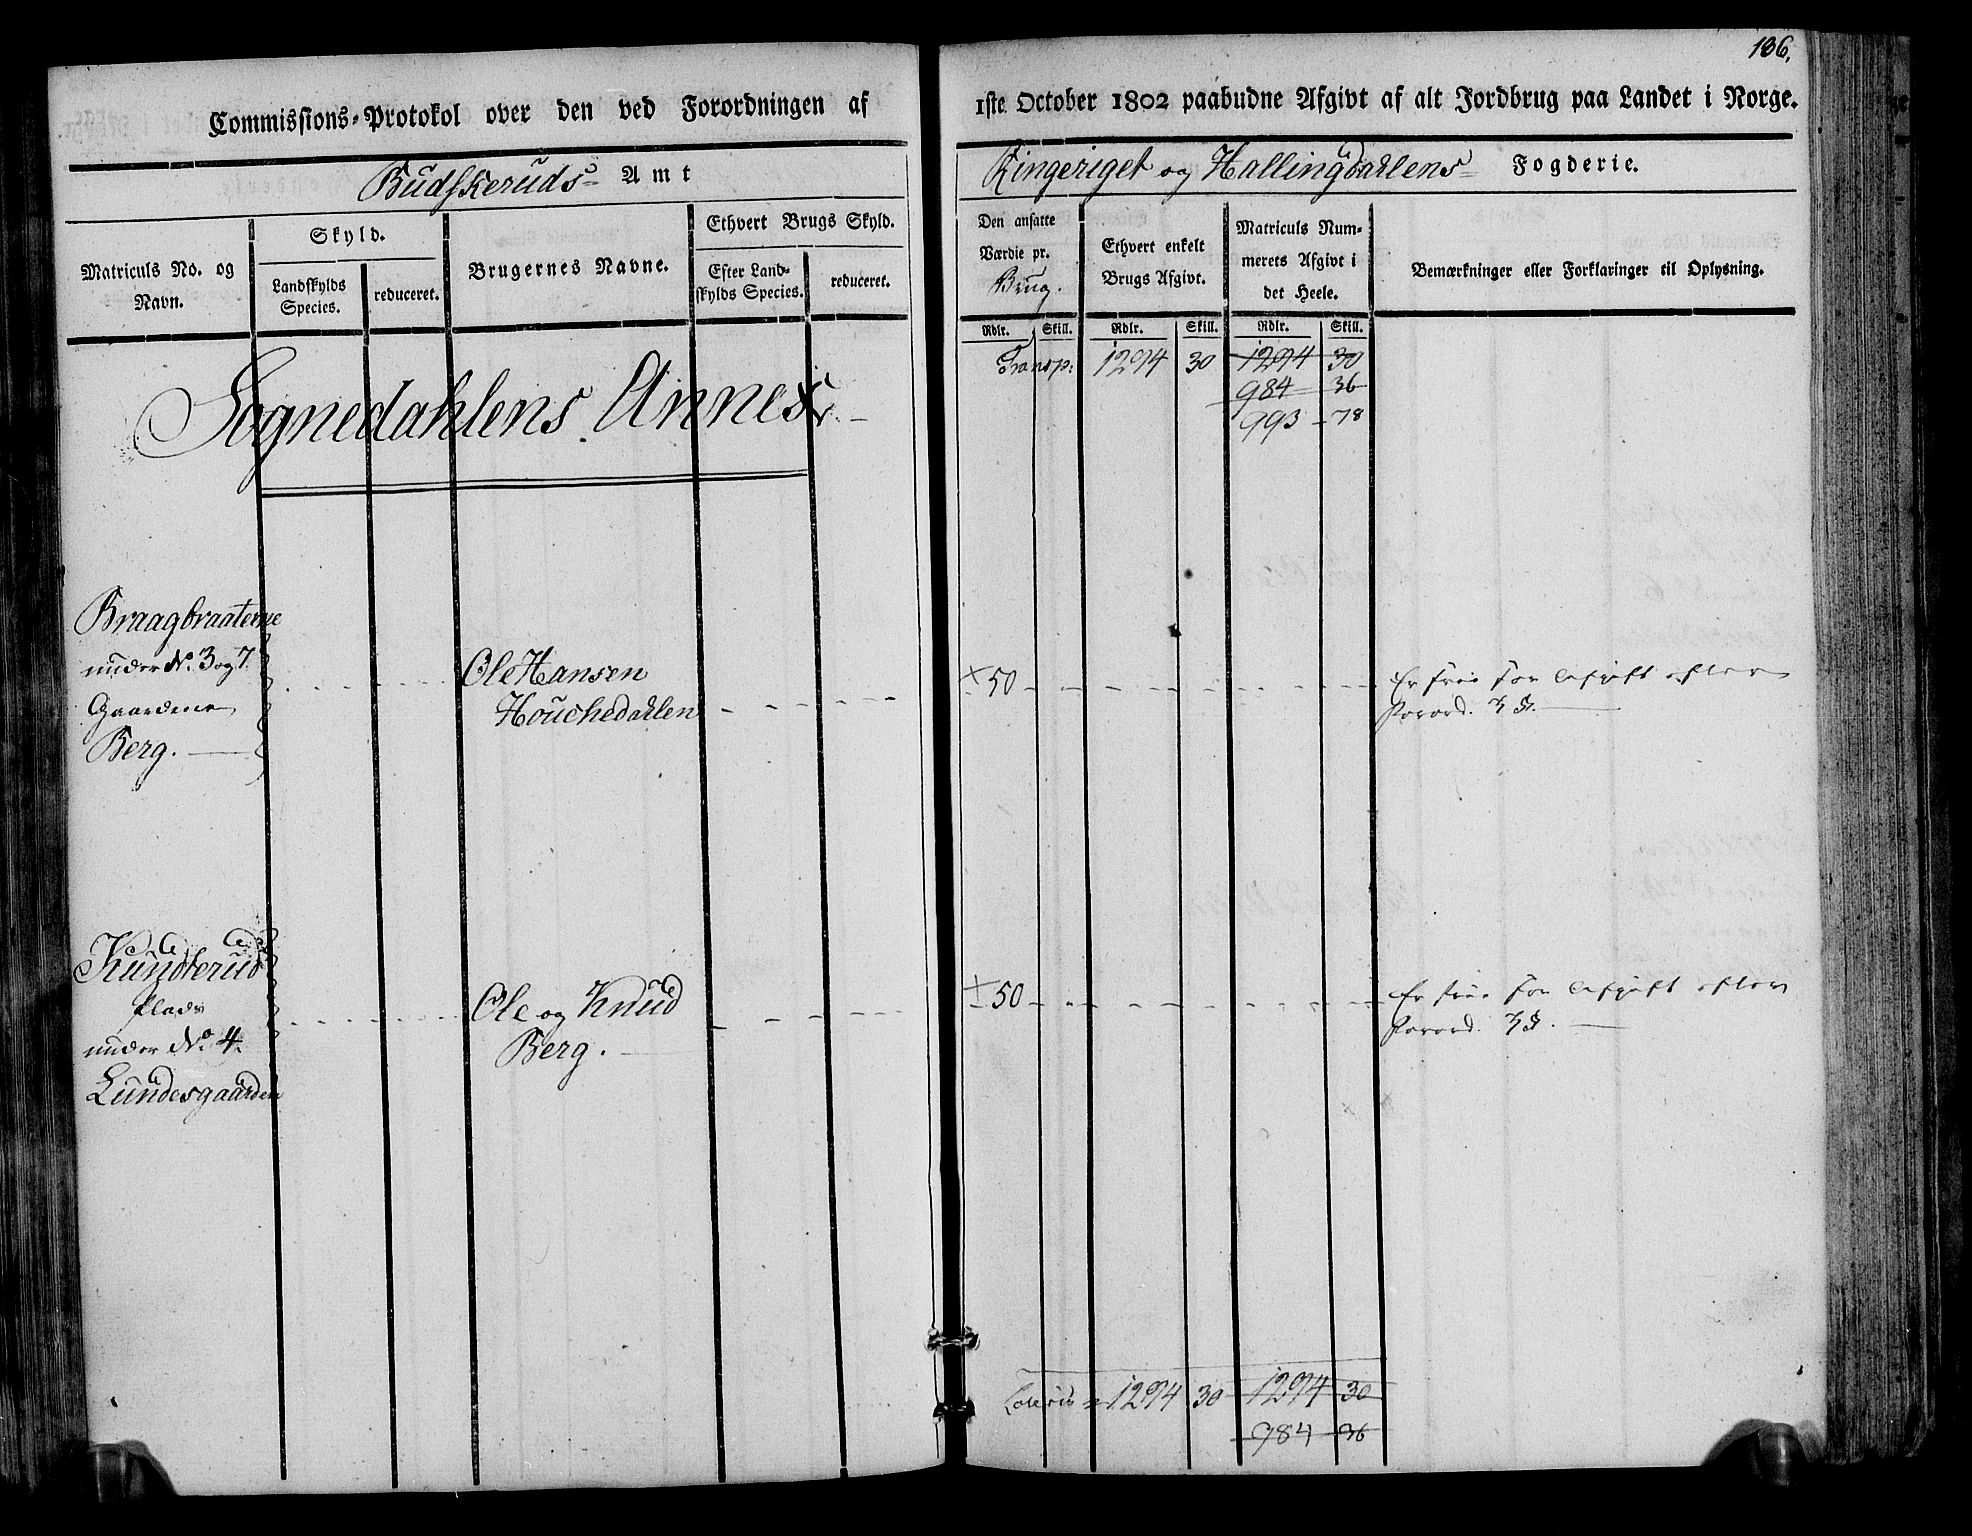 136.
Commissions-Protokol over den ved Forordningen af
1ste October 1802 paabudne Afgivt af alt Jordbrug paa Landet i Norge.
Budskeruds Amt
Ringeriget og Hallingdahlens Fogderie.
Matriculs No. og Navn.
Skyld.
Landskylds Species.
reduceret.
Brugernes Navne.
Ethvert Brugs Skyld.
Efter Landskylds Species.
reduceret.
Den ansatte Værdie pr. Brug.
Ethvert enkelt Brugs Afgivt.
Matriculs Nummerets Afgivt i det Heele.
Bemærkninger eller Forklaringer til Oplysning.
Rdlr. Skill. Rdlr. Skill. Rdlr. Skill.
Transp: 1294 30 1294 30
984 36
993 78
Sognedahlens Annex
Braagbraaterne
under No. 3 og 7
Gaardene
Berg.
Ole Hansen
Houchedahlen
50
Er frie for Afgift efter
Forord.
Kundterud
Plads
under No. 4
Lundesgaarden
Ole og Knud
Berg.
50
Er frie for Afgift efter
Forord.
Lateris 1294 30 1294 30
984 36